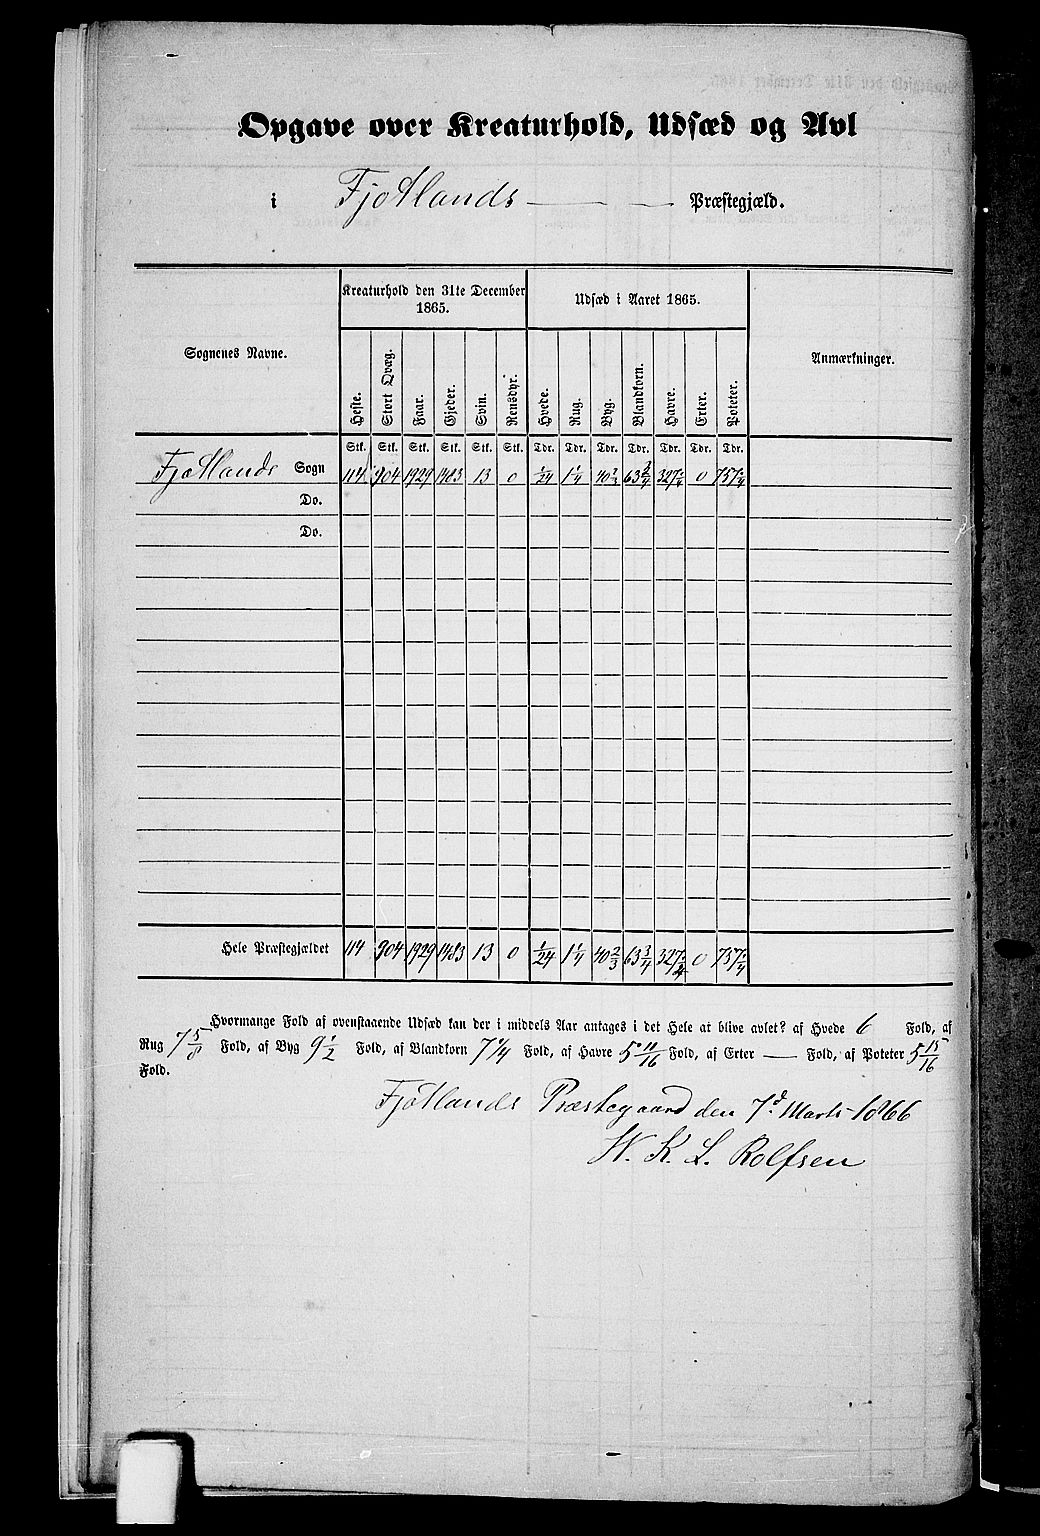 Opgave over Kreaturhold, Udsæd og Avl
i Fjotlands Præstegjæld.
Sognenes Navne.
Kreaturhold den 31te December 1865.
Udsæd i Aaret 1865.
Anmærkninger.
Heste. Stort Qvæg. Faar. Gjeder. Svin. Rensdyr. Hvede. Rug. Byg. Blandkorn. Havre. Erter. Poteter.
Stk. Stk. Stk. Stk. Stk. Stk. Tdr. Tdr. Tdr. Tdr. Tdr. Tdr. Tdr.
Fjotlands Sogn 114 904 1929 1483 13 0 1/24 1 1/4 40 2/3 63 3/4 327 1/4 0 757 1/4
Do.
Do.
Hele Præstegjældet 114 904 1929 1483 13 0 1/24 1 1/4 40 2/3 63 3/4 327 1/4 0 757 1/4
Hvormange Fold af ovenstaaende Udsæd kan der i middels Aar antages i det Hele at blive avlet? af Hvede 6 Fold, af
Rug 7 5/8 Fold, af Byg 9 1/2 Fold, af Blandkorn 7 1/4 Fold, af Havre 5 11/16 Fold, af Erter — Fold, af Poteter 5 15/16
Fold.
Fjotlands Præstegaard den 7d Marts 1866
W. K. L. Rolfsen